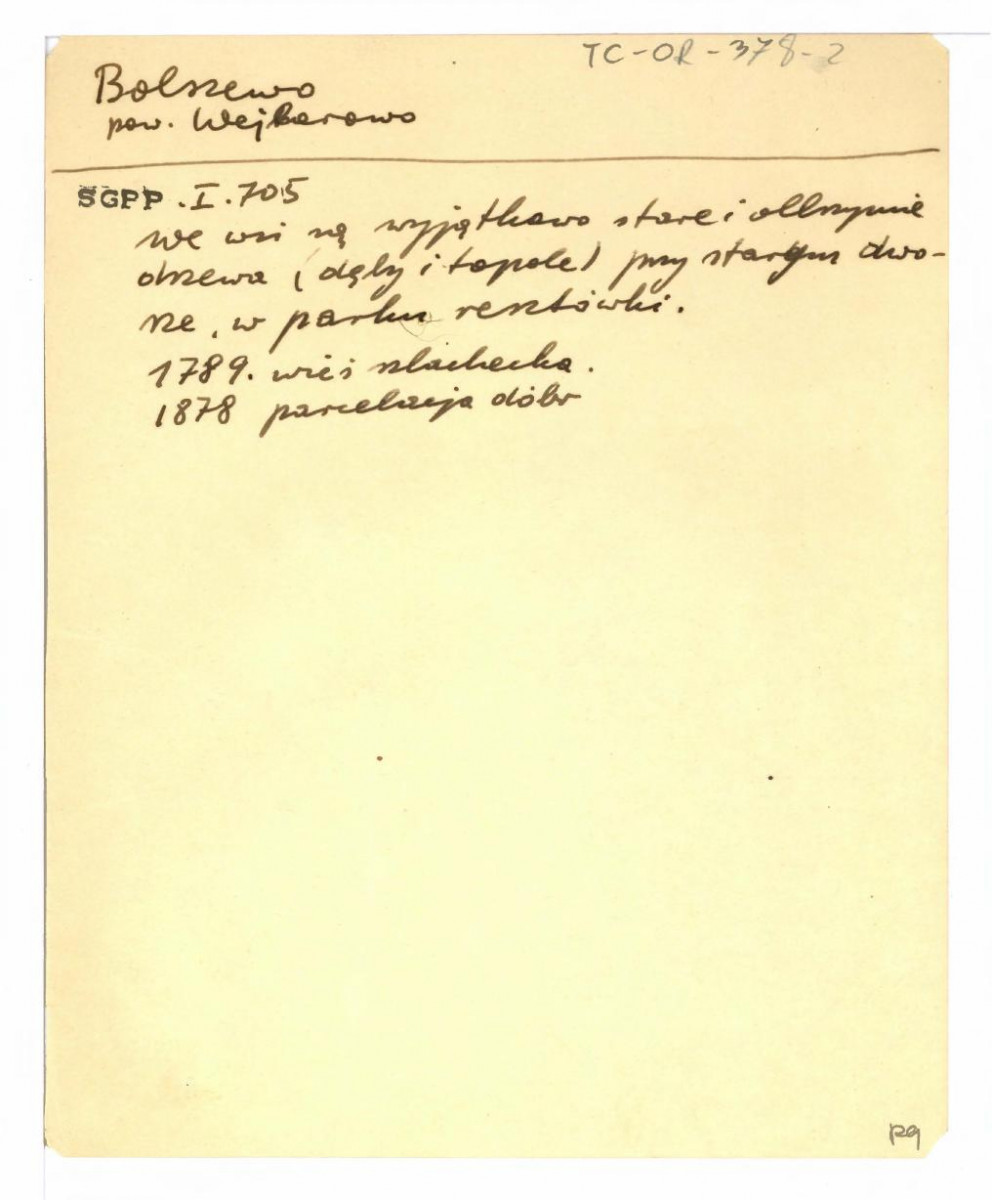 TC-OR-378-2
Bolszewo
pow. Wejherowo
SGPP.I.705
We wsi są wyjątkowo stare i olbrzymie
drzewa (dęby i topole) przy starym dwo-
rze, w parku resztówki.
1789. wieś szlachecka.
1878 parcelacja dóbr